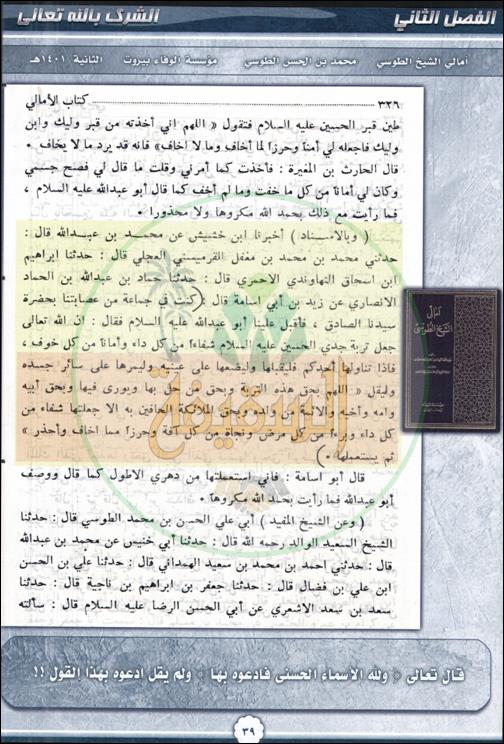 الفصل الثاني
الشرك بالله تعالى
أمالي الشيخ الطوسي محمد بن الحسن الطوسي مؤسسة الوفاء بيروت الثانية ١٤٠١هـ
٣٢٦ كتاب الأمالي
طين قبر الحسين عليه السلام فتقول « اللهم اني أخذته من قبر وليك وابن
وليك فاجعله لي أمناً وحرزاً لما أخاف وما لا اخاف» فانه قد يرد ما لا يخاف .
قال الحارث بن المغيرة : فأخذت كما أمرني وقلت ما قال لي فصح جسمي
وكان لي أماناً من كل ما خفت وما لم أخف كما قال أبو عبدالله عليه السلام ،
فما رأيت مع ذلك بحمد الله مكروها ولا محذورا .
( وبالاسناد ) أخبرنا ابن خشيش عن محمد بن عبدالله قال :
حدثني محمد بن محمد بن مغفل القرميسني العجلي قال : حدثنا ابراهيم
ابن اسحاق النهاوندي الاحمري قال : حدثنا حماد بن عبدالله بن الحماد
الانصاري عن زيد بن أبي اسامة قال : ( كنت في جماعة من عصابتنا بحضرة
سيدنا الصادق ، فأقبل علينا أبو عبدالله عليه السلام فقال : ان الله تعالى
جعل تربة جدي الحسين عليه السلام شفاءاً من كل داء وأماناً من كل خوف ،
فاذا تناولها أحدكم فليقبلها وليضعها على عينيه وليمرها على سائر جسده
وليقل « اللهم بحق هذه التربة وبحق من حل بها ويورى فيها وبحق أبيه
وامه وأخيه والائمة من ولده وبحق الملائكة الحافين به الا جعلتها شفاء من
كل داء وبرءاً من كل مرض ونجاة من كل آفة وحرزاً مما اخاف وأحذر »
ثم يستعملها . )
قال أبو اسامة : فاني استعملتها من دهري الاطول كما قال ووصف
أبو عبدالله فما رأيت بحمد الله مكروهاً .
( وعن الشيخ المفيد ) أبي علي الحسن بن محمد الطوسي قال : حدثنا
الشيخ السعيد الوالد رحمه الله قال : حدثنا أبي خنيس عن محمد بن عبدالله
قال : حدثني أحمد بن محمد بن سعيد الهمداني قال : حدثنا علي بن الحسن
ابن علي بن فضال قال : حدثنا جعفر بن ابراهيم بن ناجية قال : حدثنا
سعد بن سعد الاشعري عن أبي الحسن الرضا عليه السلام قال : سألته
السقيفة
أمالي
الشيخ الطوسي
قال تعالى ﴿ ولله الأسماء الحسنى فادعوه بها ﴾ ولم يقل ادعوه بهذا القول !!
٣٩